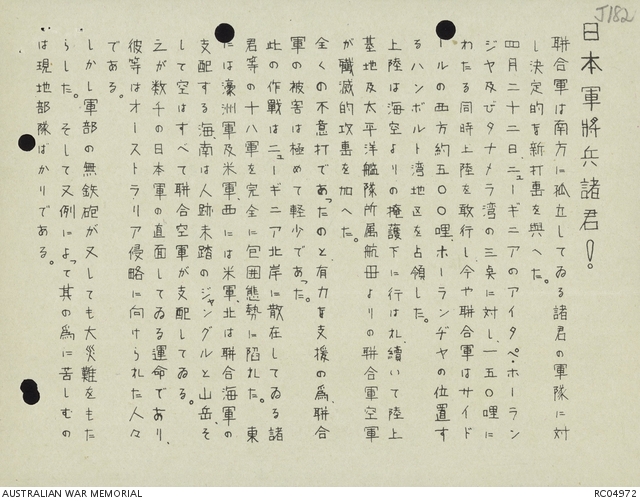 J182
日本軍將兵諸君！
聯合軍は南方に孤立してゐる諸君の軍隊に対
し決定的な新打擊を與へた。
四月二十二日ニューギニアのアイタペ・ホーラン
ジヤ及びタナメラ湾の三奌に対し、一五〇哩に
わたる同時上陸を敢行し今や聯合軍はサイド
ールの西方約五〇〇哩、ホーランヂヤの位置す
るハンボルト湾地区を占領した。
上陸は海空よりの掩護下に行はれ、續いて陸上
基地及太平洋艦隊所属航母よりの聯合軍空軍
が殲滅的攻擊を加へた。
全くの不意打であったのと有力な支援の爲、聯合
軍の被害は極めて軽少であった。
此の作戰はニューギニア北岸に散在してゐる諸
君等の十八軍を完全に包囲態勢に陷れた。東
には濠洲軍及米軍、西には米軍、北は聯合海軍の
支配する海、南は人跡未踏のジャングルと山岳、そ
して空はすべて聯合空軍が支配してゐる。
之が数千の日本軍の直面してゐる運命であり、
彼等はオーストラリア侵略に向けられた人々
である。
しかし軍部の無鉄砲が又しても大災難をもた
らした。そして又例によって其の爲に苦しむの
は現地部隊ばかりである。
AUSTRALIAN WAR MEMORIAL
RC04972